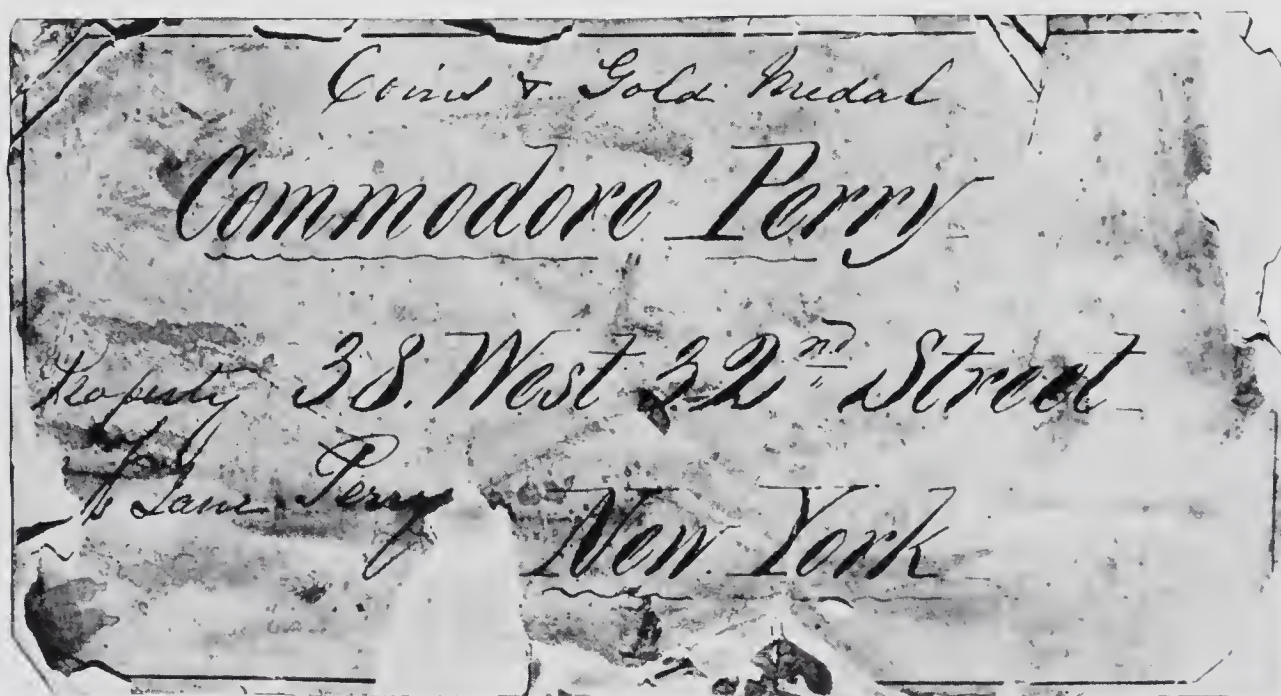 Coins & Gold Medal
Commodore Perry
38. West 32nd Street
New York
Property
of Jane Perry